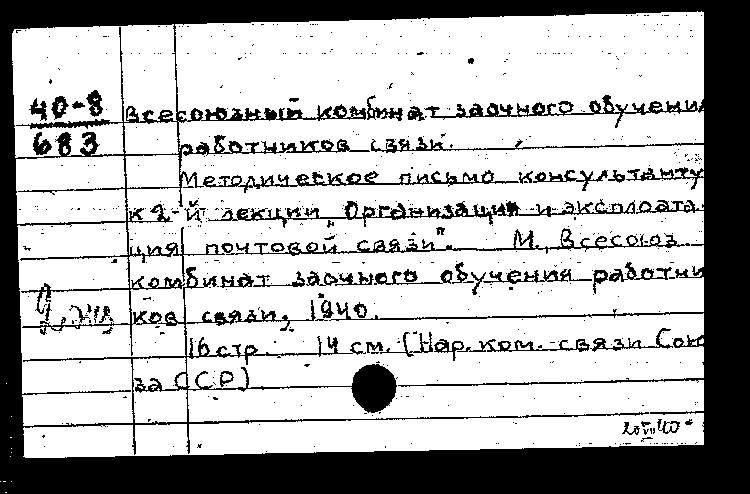 40-8
683
Всесоюзный комбинат заочного обучени
работников связи.
Методическое письмо консультанту
к 2-й лекции „Организация и эксплоата-
ция почтовой связи". М., Всесоюз
комбинат заочного обучения работни
ков связи, 1940.
16 стр. 14 см. (Нар. ком. связи Сою
за ССР)